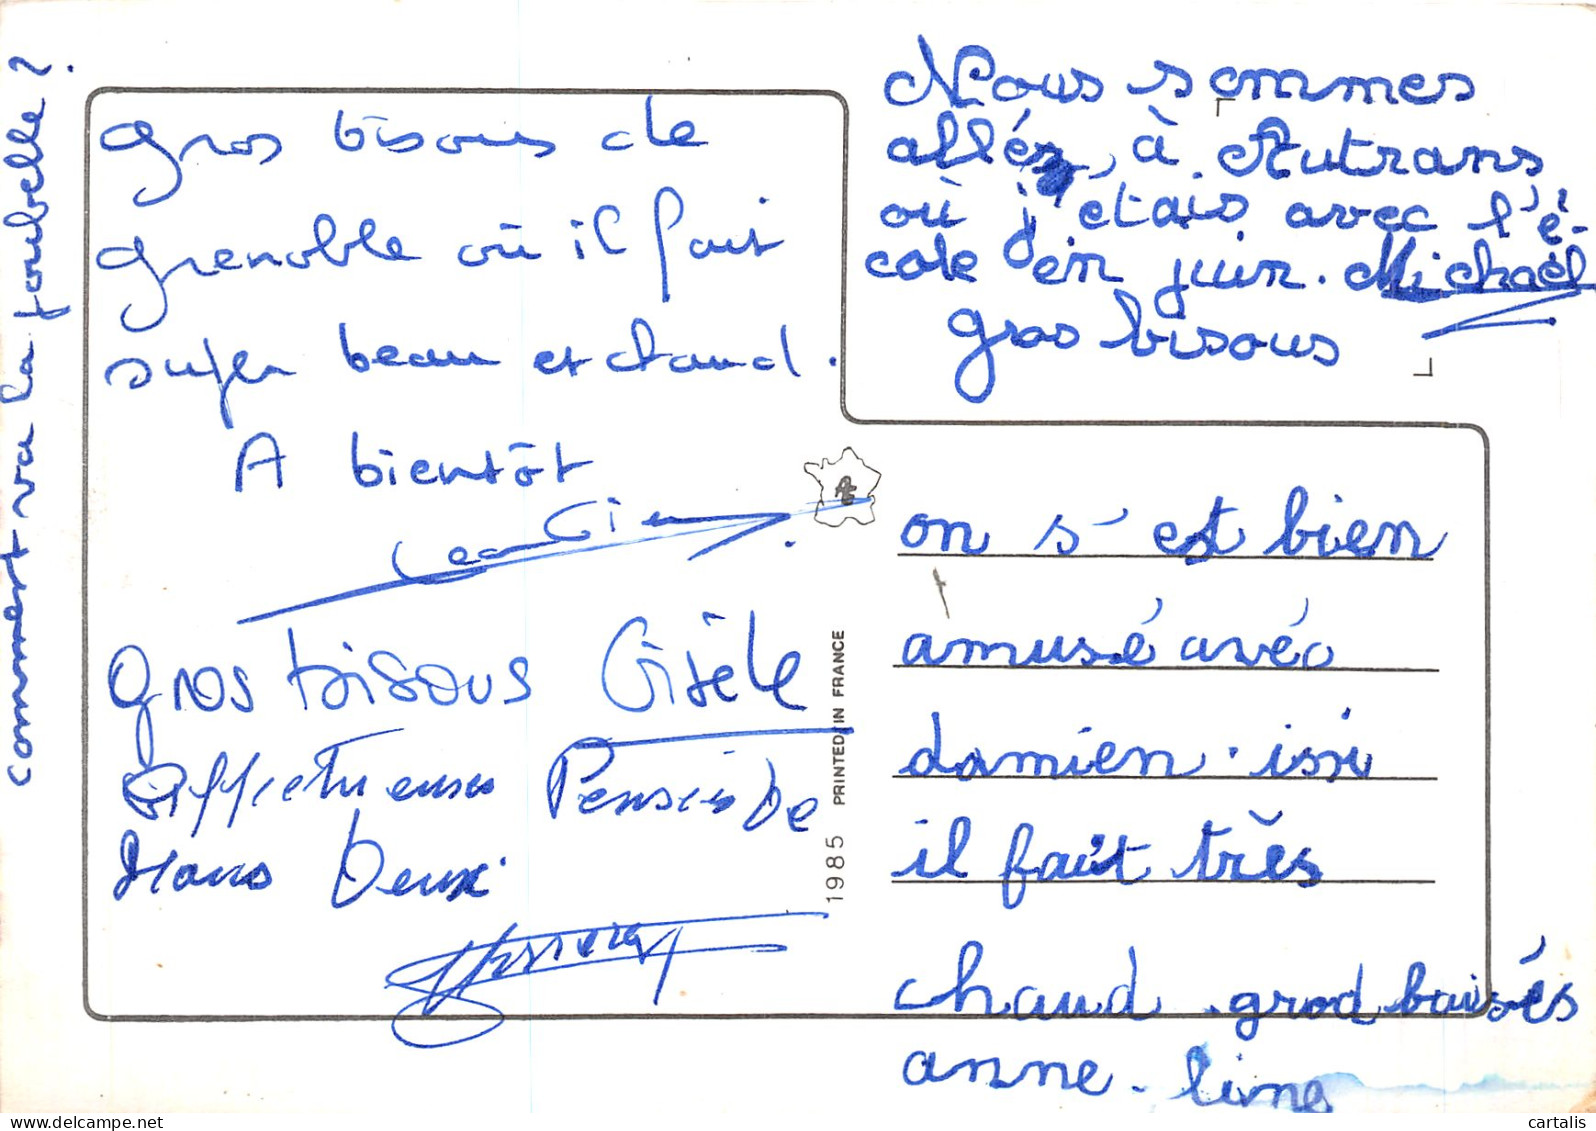 comment va la poubelle ?
Gros bisous de
Grenoble où il fait
super beau et chaud.
A bientôt
Gros bisous Gisèle
Affectueuses Pensées De
Nous Deux
Nous sommes
allés, à Autrans
où j'étais avec l'é-
cole en juin. Michaël
gros bisous
on s'est bien
amusé avéc
damien. issi
il fait très
chaud. grod baisés
anne-line
1985 PRINTED IN FRANCE
cartalis